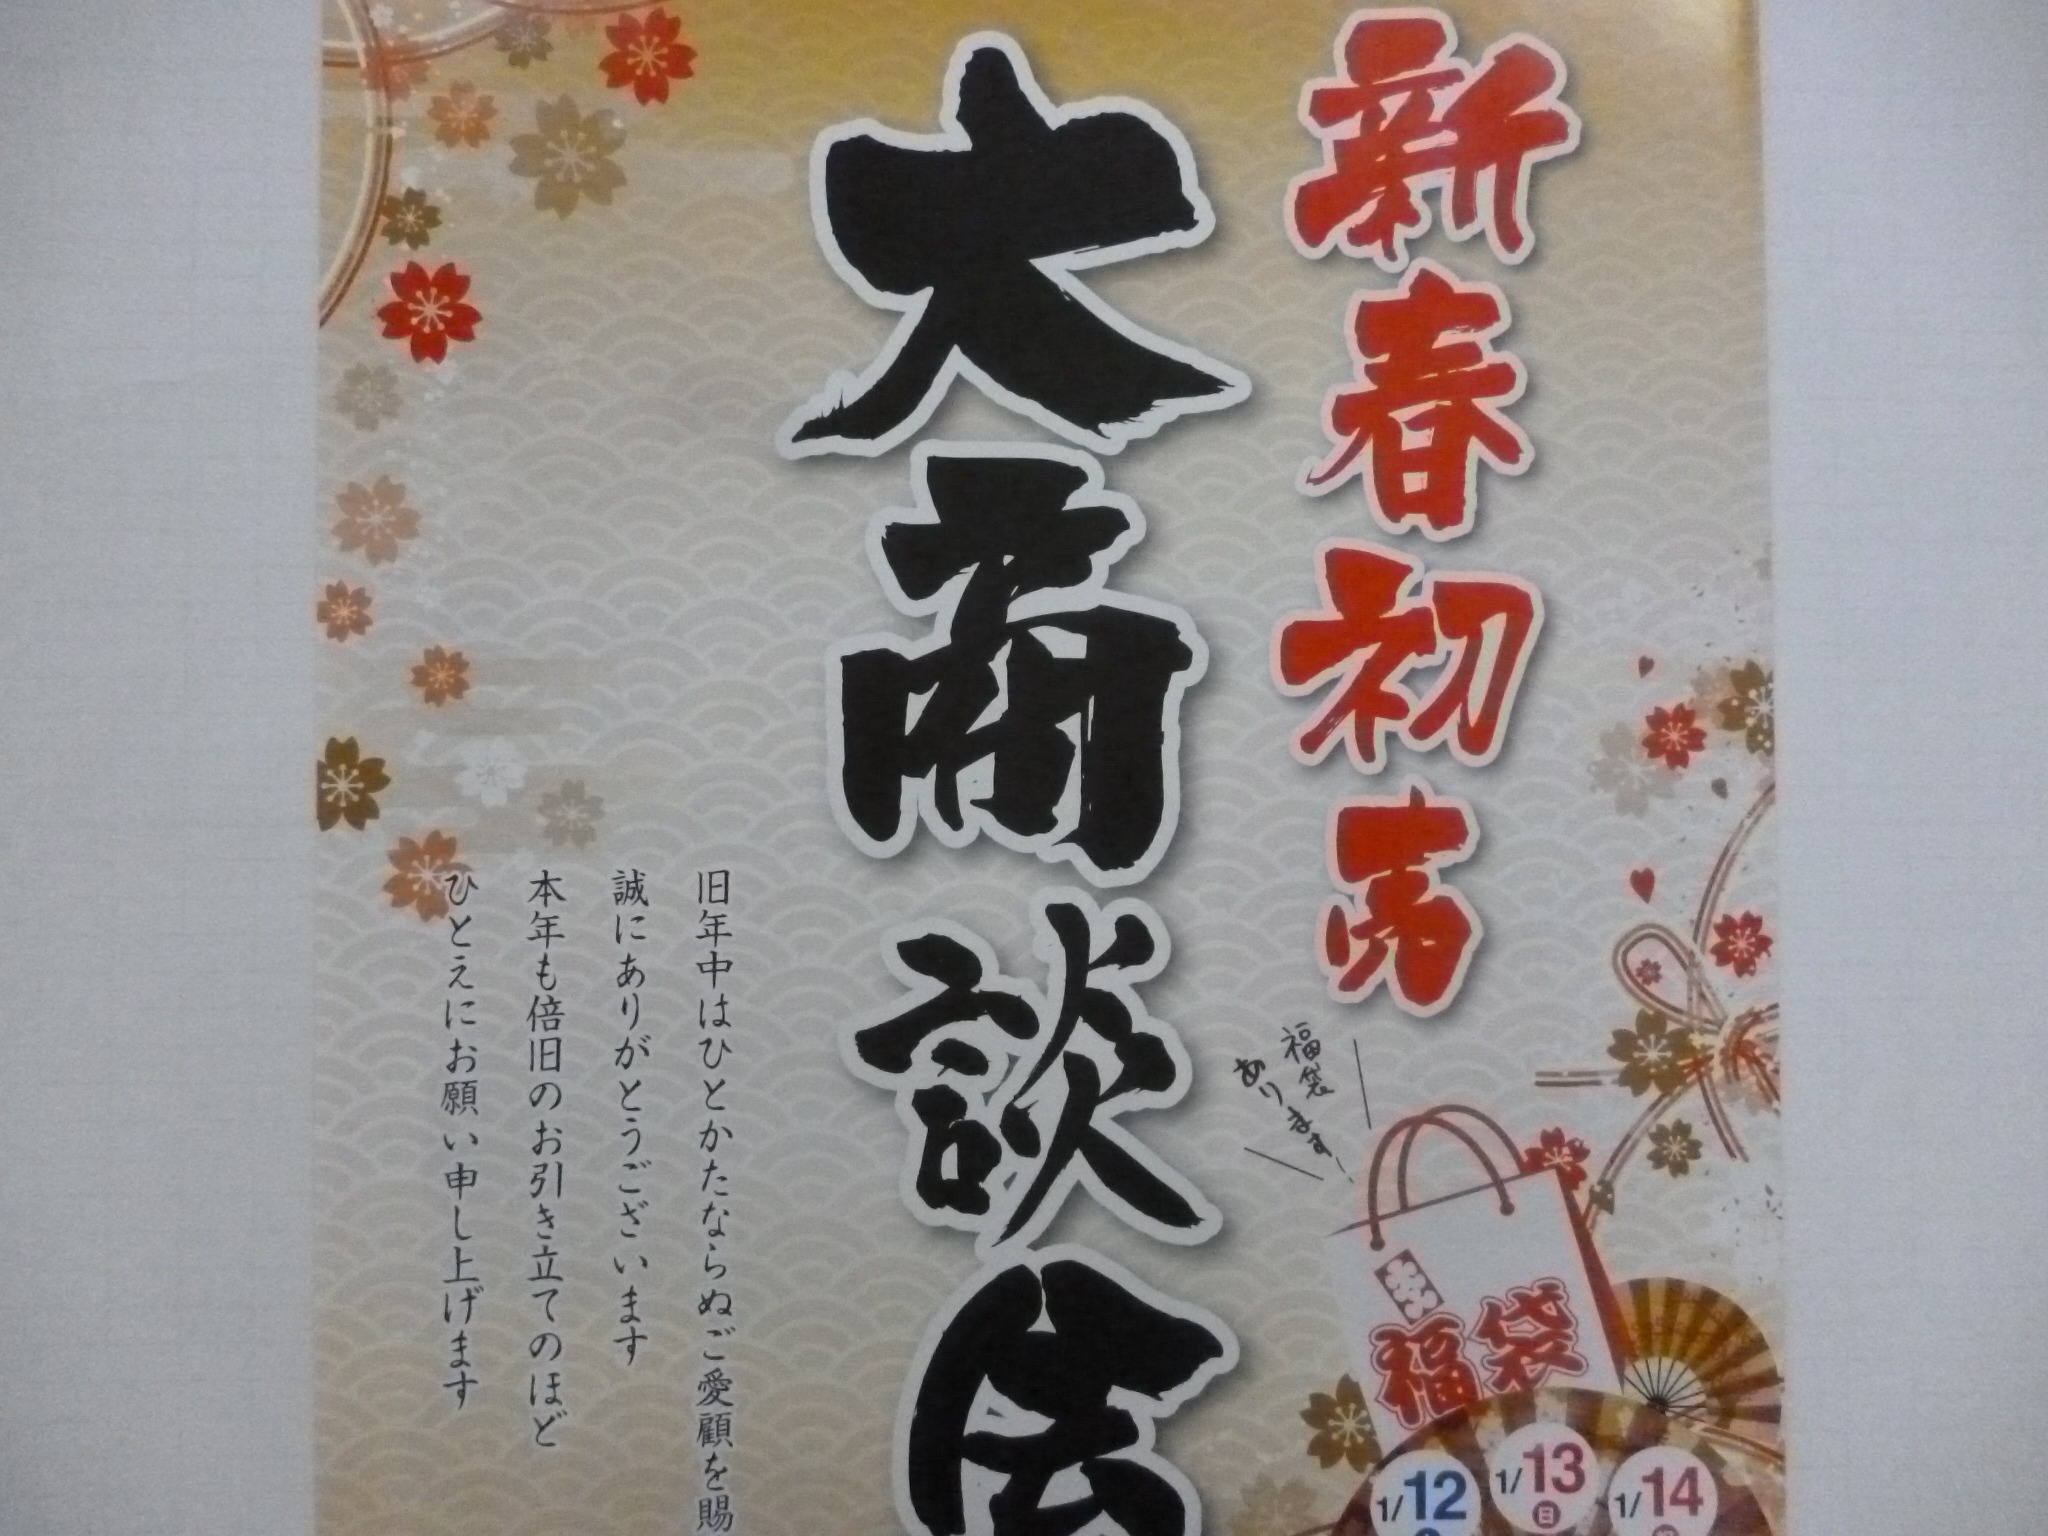 新春初売
大商談会
福袋
あります
旧年中はひとかたならぬご愛顧を賜
誠にありがとうございます
本年も倍旧のお引き立てのほど
ひとえにお願い申し上げます
福袋
1/12
1/13 日
1/14